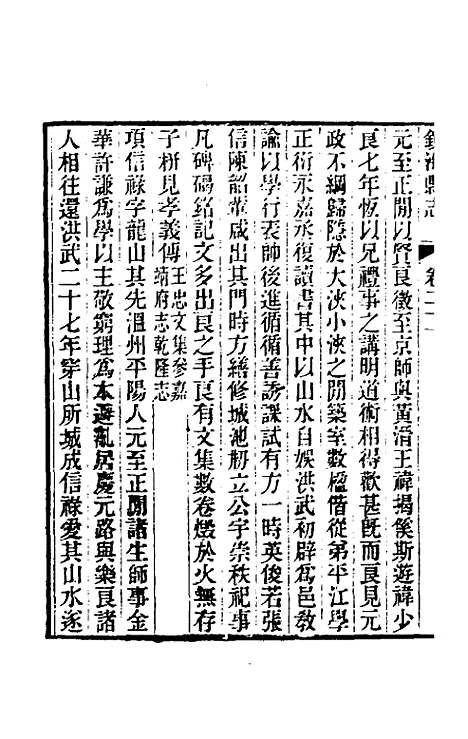 鎮海縣志 卷二十
元至正閒以賢良徵至京師與黃溍王禕揭傒斯遊禕少
良七年恆以兄禮事之講明道術相得歡甚旣而良見元
政不綱歸隱於大浹小浹之閒築室數楹偕從弟平江學
正衍永嘉永復讀書其中以山水自娛洪武初辟爲邑教
諭以學行表師後進循循善誘課試有方一時英俊若張
信陳韶輩咸出其門時方繕修城池刱立公宇崇秩祀事
凡碑碣銘記文多出良之手良有文集數卷燬於火無存
子栟見孝義傳王忠文集參嘉
靖府志乾隆志
項信祿字龍山其先溫州平陽人元至正閒諸生師事金
華許謙爲學以主敬窮理爲本避亂居慶元路與樂良諸
人相往還洪武二十七年穿山所城成信祿愛其山水遂